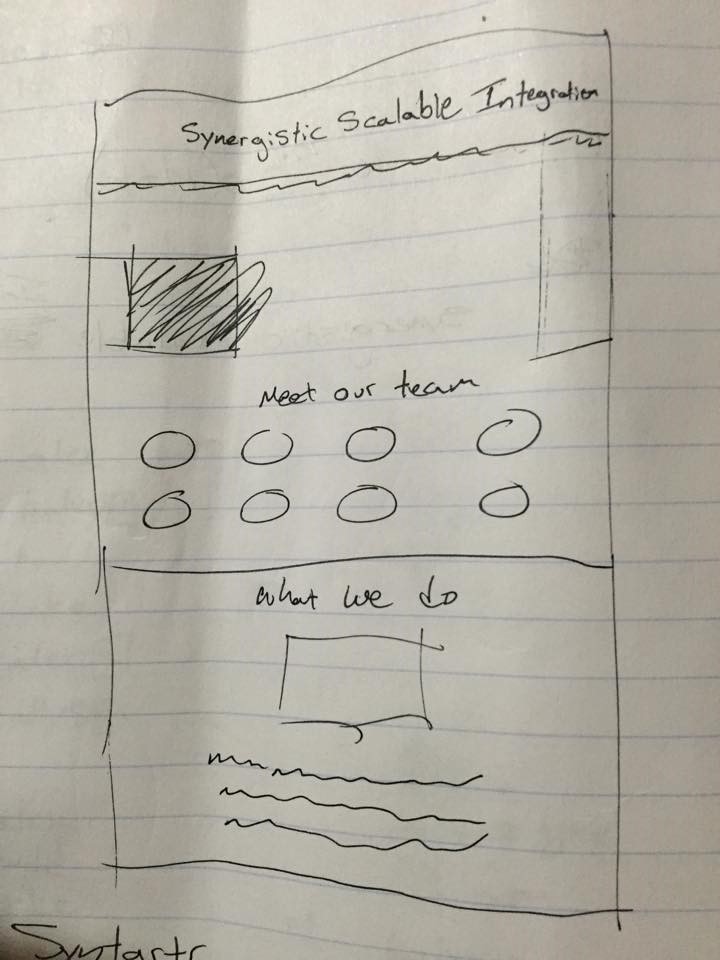 Synergistic Scalable Integration
Meet our team
What we do